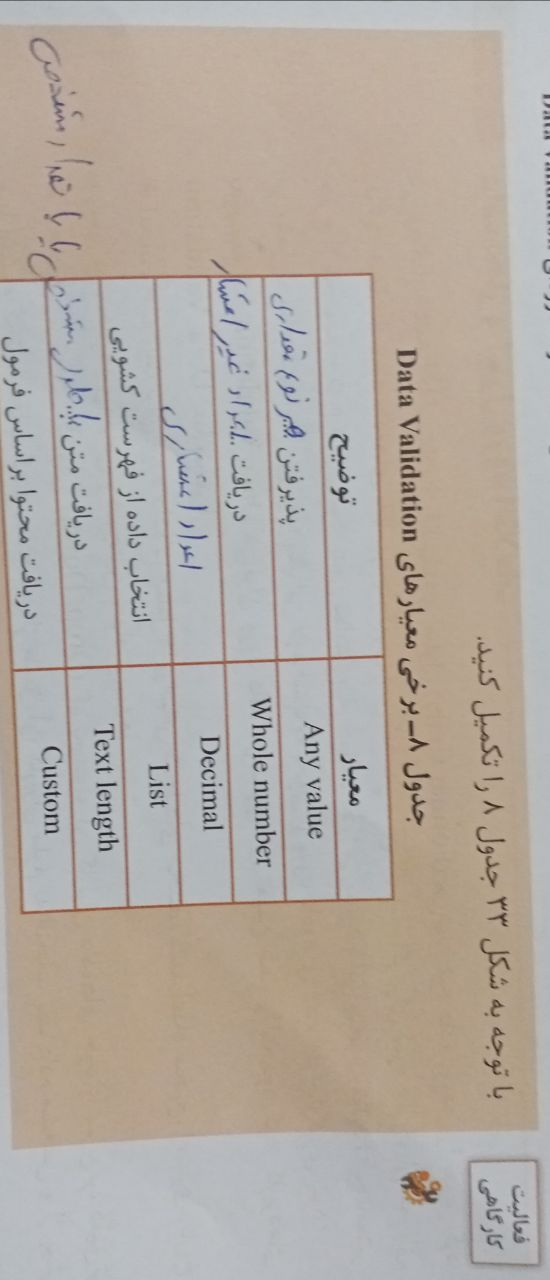 فعالیت
کارگاهی
با توجه به شکل ۳۳ جدول ۸ را تکمیل کنید.
جدول ۸- برخی معیارهای Data Validation
معیار توضیح
Any value پذیرفتن هر نوع مقداری
Whole number دریافت اعداد غیر اعشاری
Decimal اعداد اعشاری
List انتخاب داده از فهرست کشویی
Text length دریافت متن با طول مشخص یا با تعداد مشخص
Custom دریافت محتوا براساس فرمول